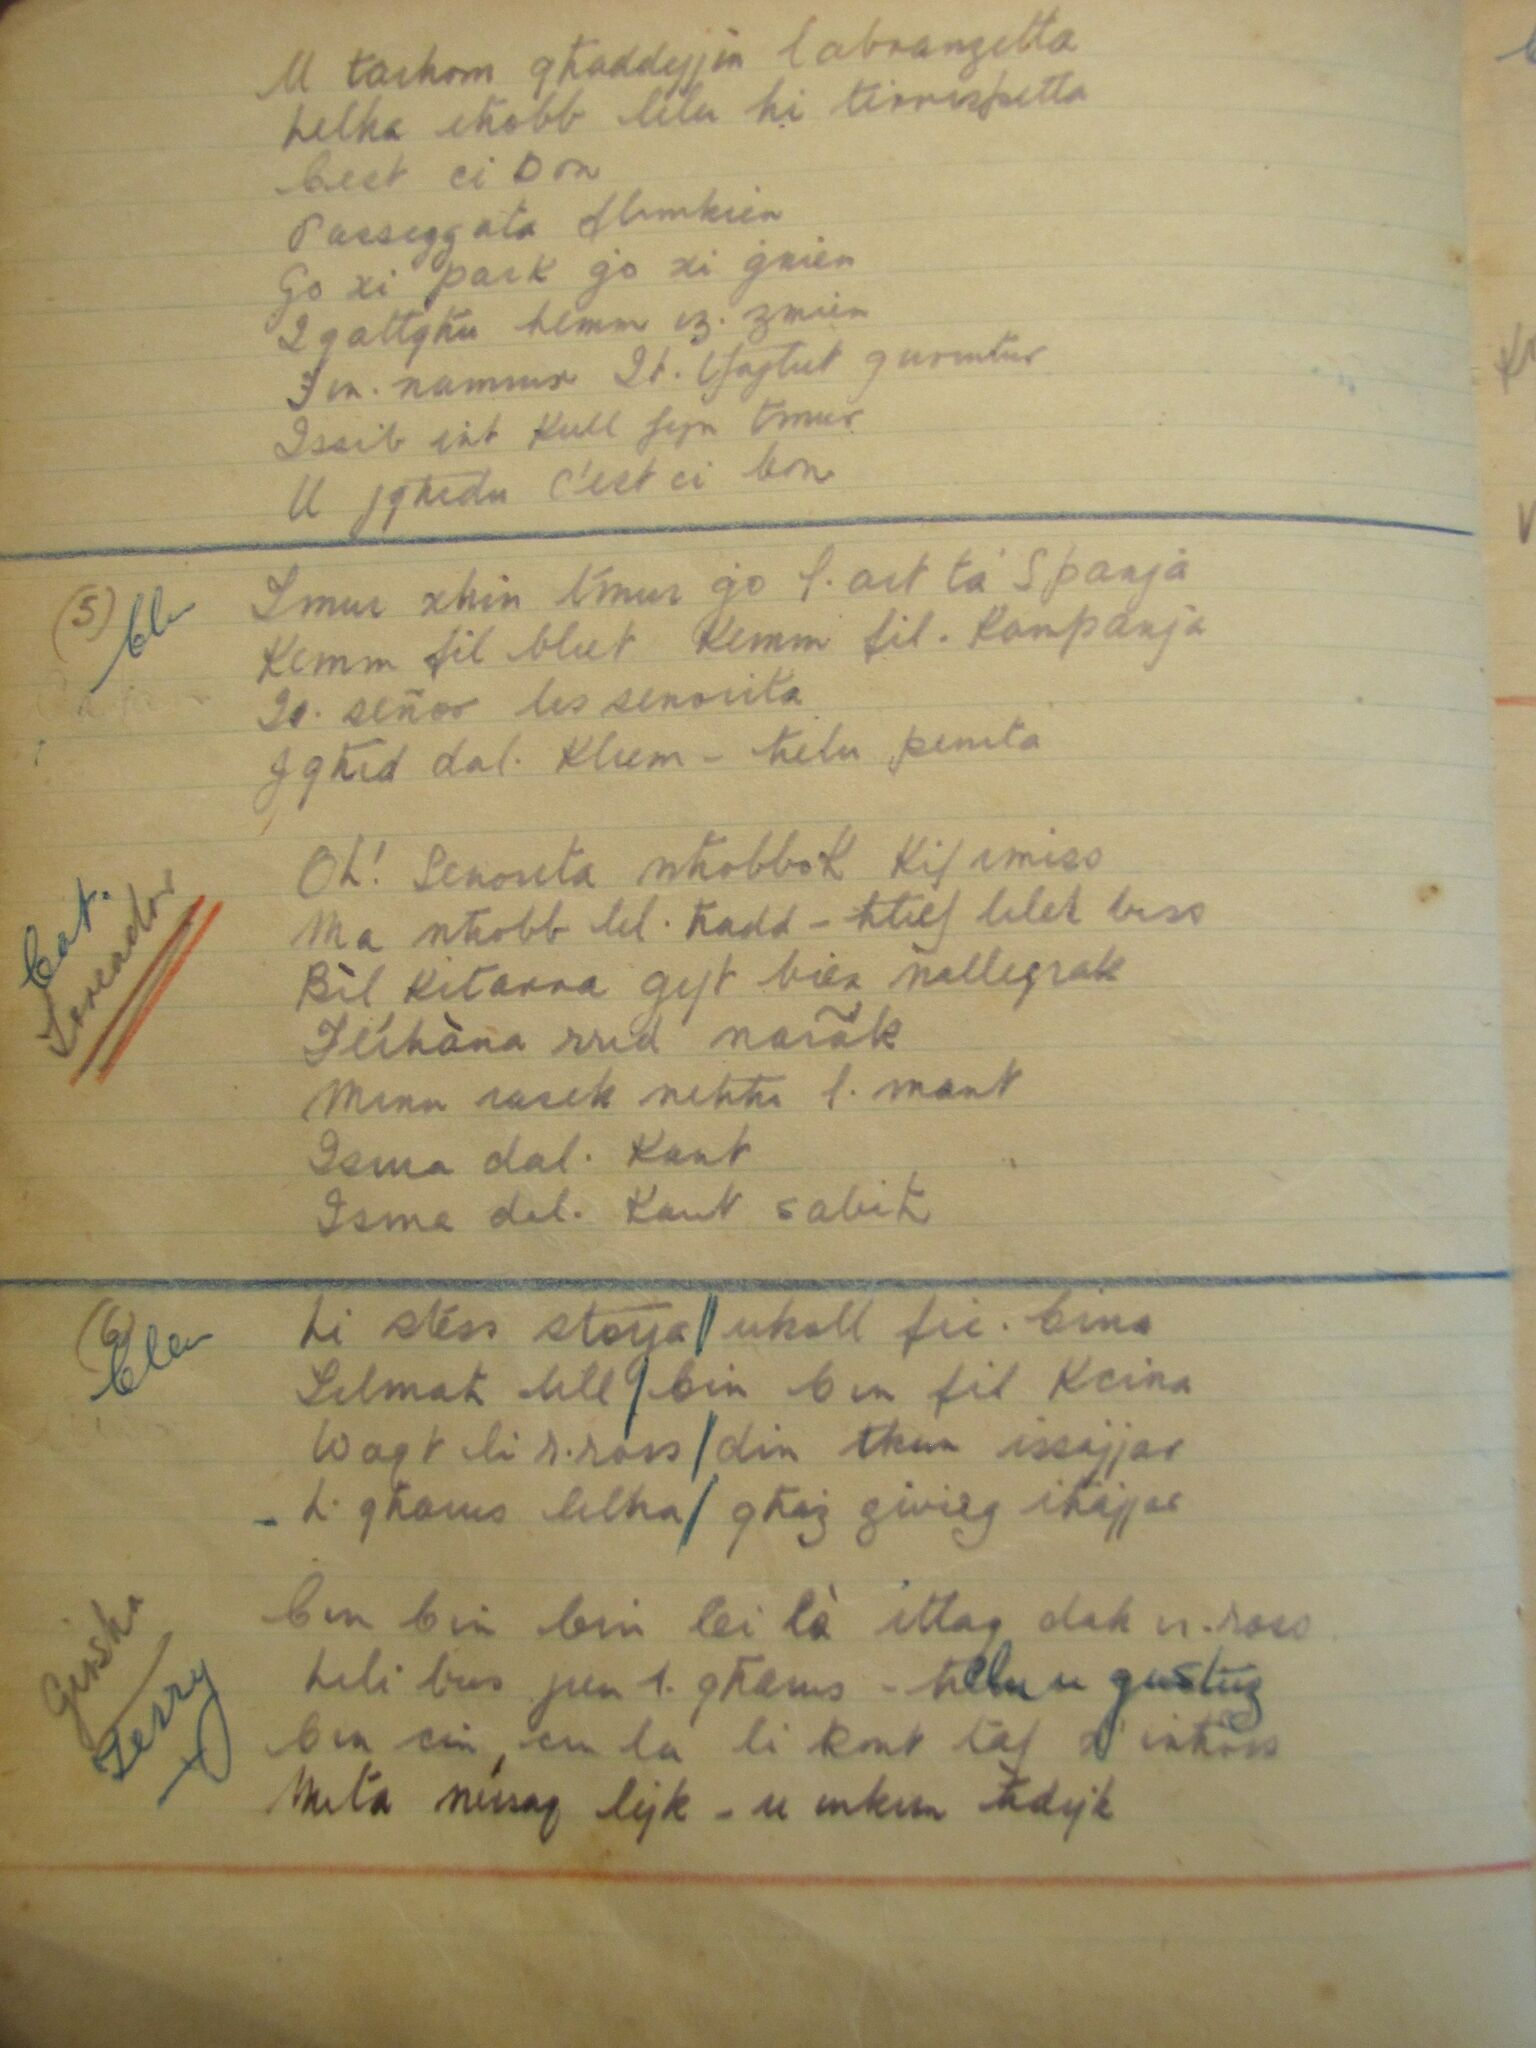 U tarhom għaddejjin l abranzetta
Lelha tħobb lilu hi tirrispetta
C'est ci Bon
Passeggata flimkien
Ġo xi park ġo xi ġnien
Igattgħu hemm iz. zmien
Fin. namur It. tfajtiet
Issib int kull fejn tmur
U jgħidu c'est ci bon
(5)
Imur xħin tmur ġo l. art ta Spanja
Kemm fil bliet Kemm fil. Kampanja
Is. señor les senorita
Jgħid dal. Kliem - ħelu penita
Oh! Senorita nħobbok Kif imiss
Ma nħobb lil. ħadd - ħlief lilek biss
Bil Kitarra ġejt biex nallegrak
Ferħàna rrid narak
Minn rasek neħħi l. mant
Isma dal. Kant
Isma dal. Kant sabiħ
Toreador
(6)
Li stess storja / ukoll fic. Cina
Lilmaħ lill / bin bin fil Kcina
Waqt li r. ross / din tkun issajjar
- L. għarus lilha / għaż żiwieġ iħajjar
Cin cin cin lei là ittaq dak ir. ross
Leli bus jien l. għarus - ħelu u gustuż
Cin cin, cin la li kont taf x' inħoss
Meta nersaq lejk - u inkun ħdejk
Terry